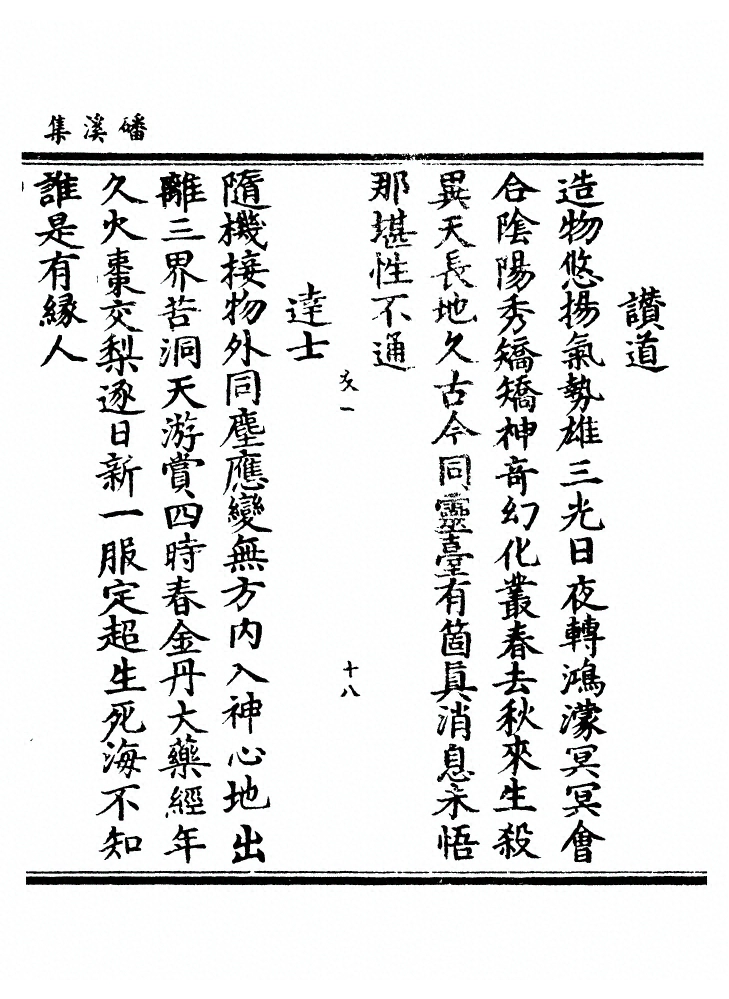 磻溪集
讃道
造物悠揚氣勢雄三光日夜轉鴻濛冥冥會
合陰陽秀矯矯神竒幻化叢春去秋來生殺
異天長地久古今同靈臺有箇眞消息未悟
那堪性不通
友一
十八
達士
隨機接物外同塵應變無方内入神心地出
離三界苦洞天游賞四時春金丹大藥經年
久火棗交梨逐日新一服定超生死海不知
誰是有緣人